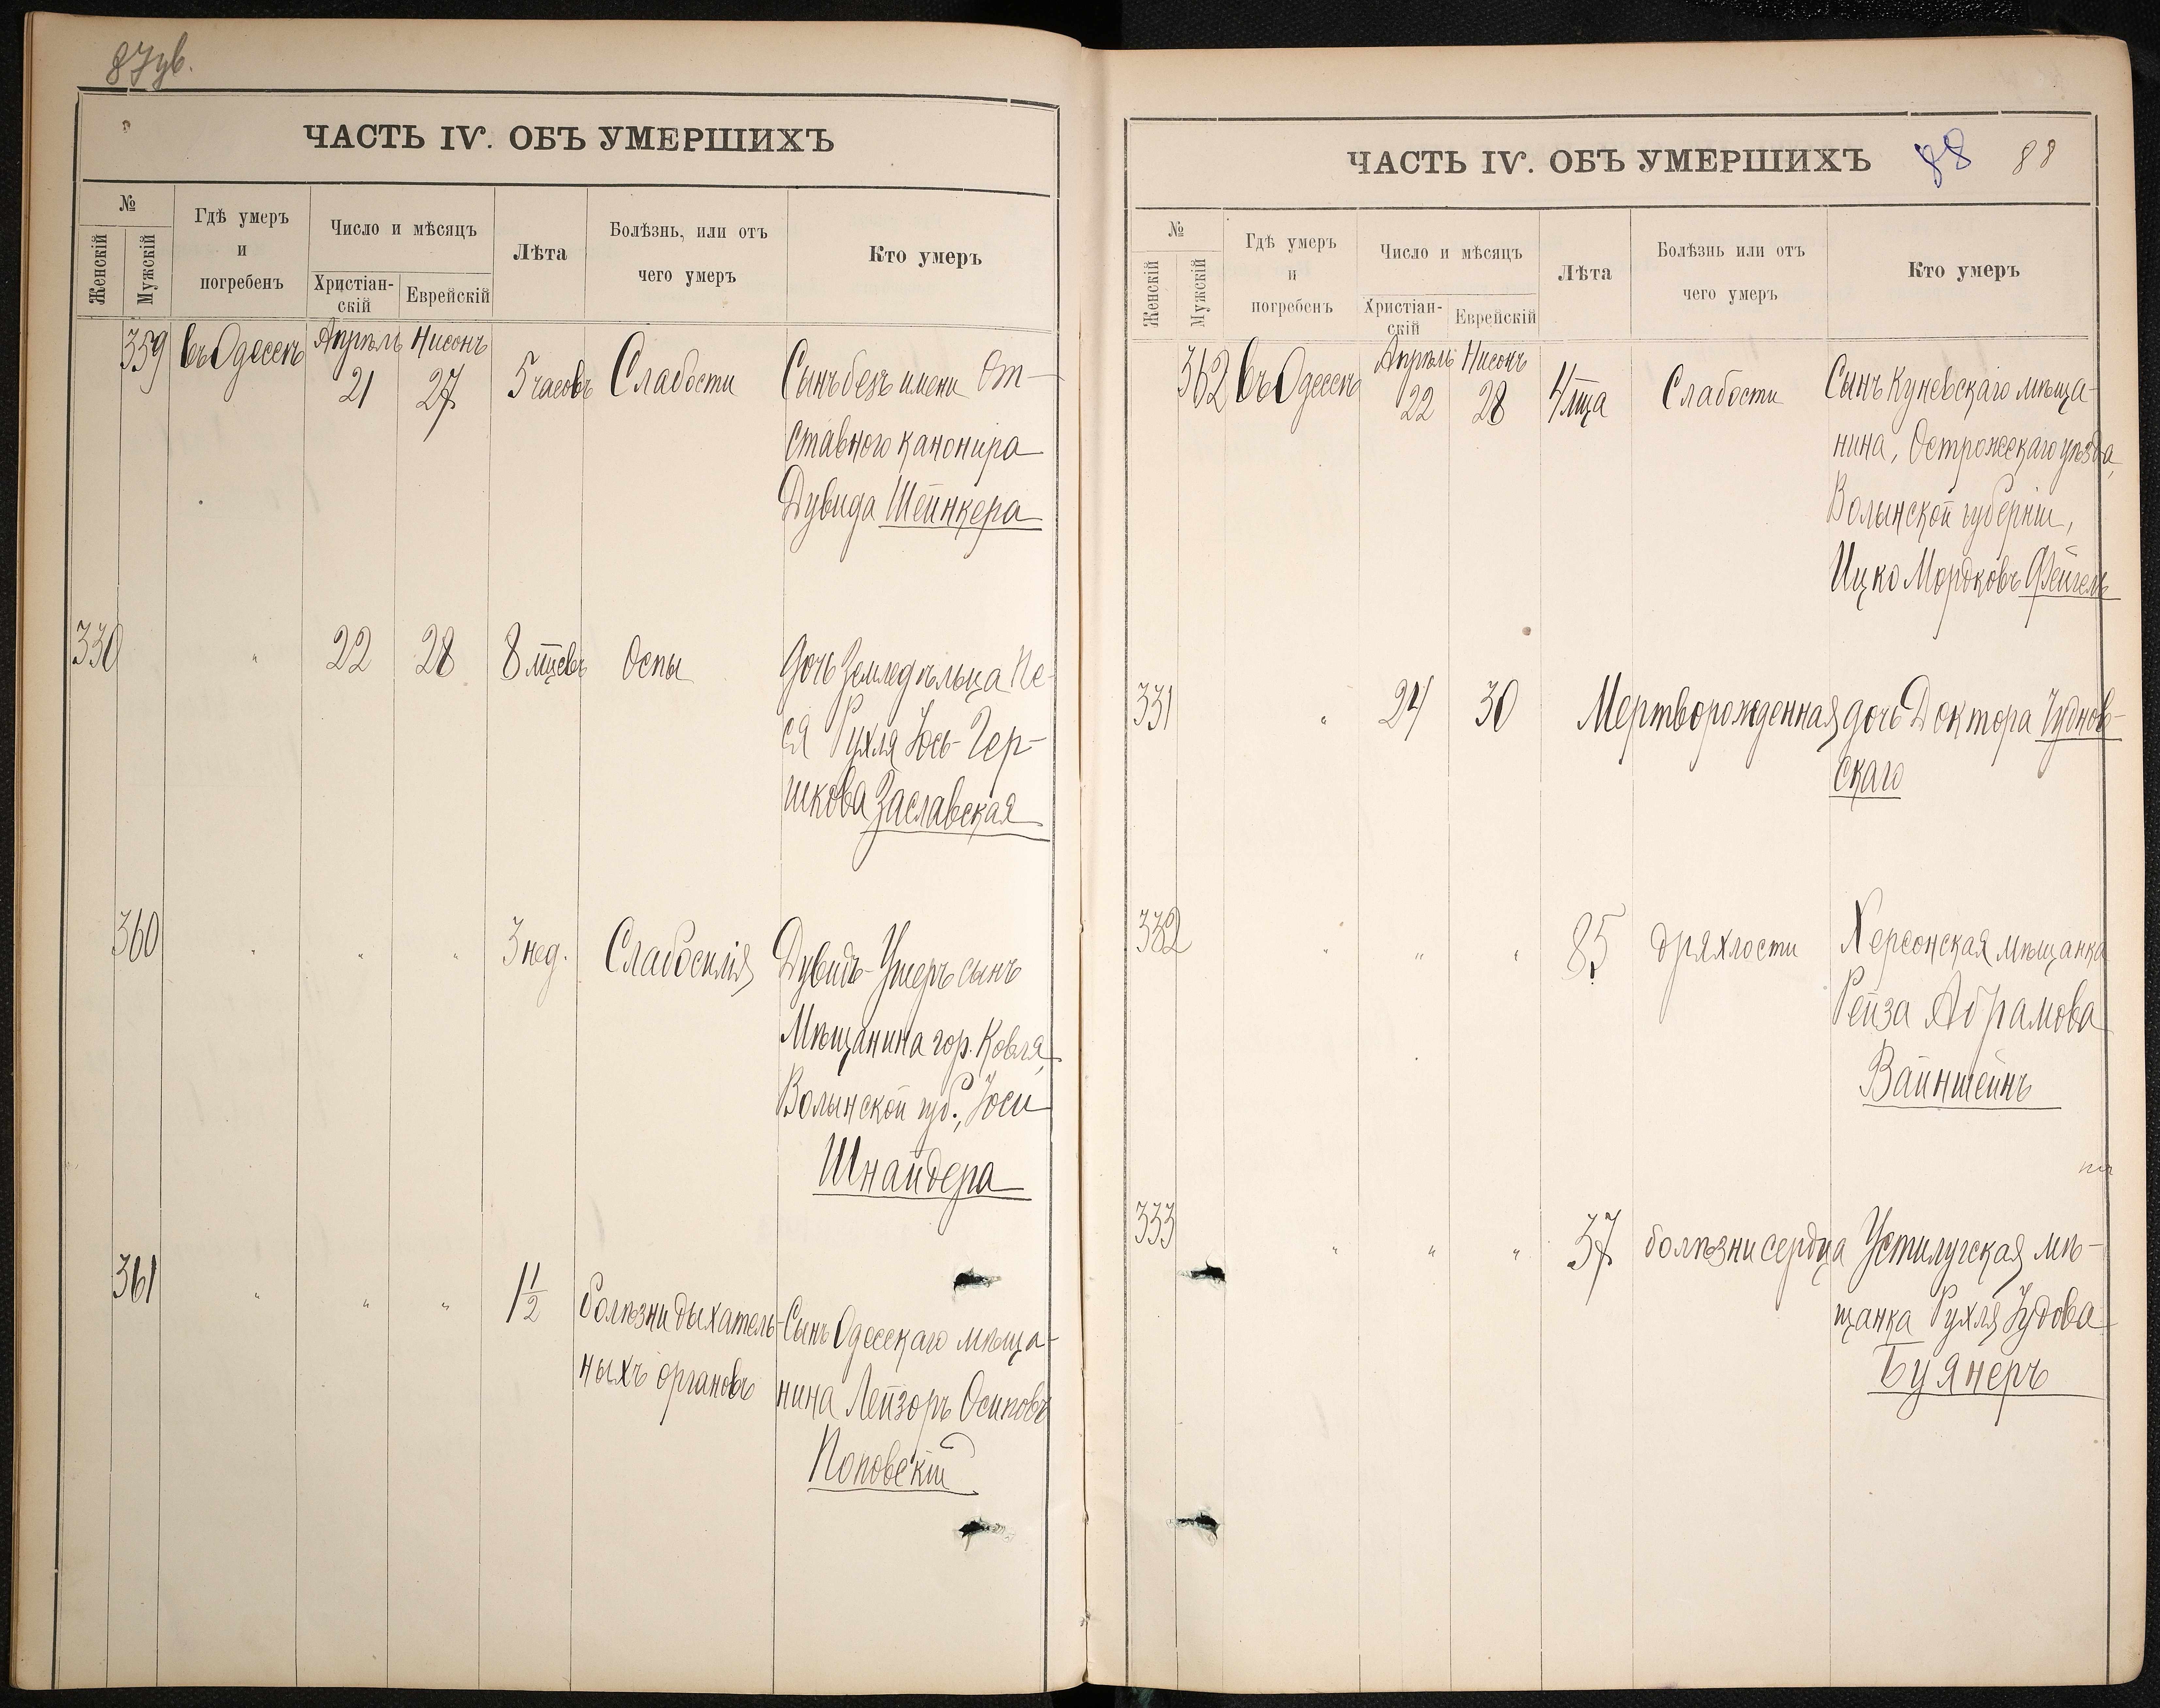 87 об.
ЧАСТЬ IV. ОБЪ УМЕРШИХЪ
№
Женскій
Мужскій
Гдѣ умеръ
и
погребенъ
Число и мѣсяцъ
Христіан-
скій
Еврейскій
Лѣта
Болѣзнь, или отъ
чего умеръ
Кто умеръ
359 въ Одессѣ Апрѣль 21 Нисонъ 27 5 часовъ Слабости Сынъ безъ имени От-
ставного канонира
Дувида Шейнкера
330 " 22 28 8 мцевъ Оспы Дочь Земледѣльца Пе-
ся Рухля Іось-Гер-
шкова Заславская
360 " " " 3 нед. Слабосилія Дувидъ-Ушеръ сынъ
Мѣщанина гор. Ковля,
Волынской губ., Іоси
Шнайдера
361 " " " 1 1/2 болѣзни дыхатель- Сынъ Одесскаго мѣща-
ныхъ органовъ нина Лейзоръ Осиповъ
Поповскій
ЧАСТЬ IV. ОБЪ УМЕРШИХЪ 88 88
№
Женскій
Мужскій
Гдѣ умеръ
и
погребенъ
Число и мѣсяцъ
Христіан-
скій
Еврейскій
Лѣта
Болѣзнь или отъ
чего умеръ
Кто умеръ
362 въ Одессѣ Апрѣль 22 Нисонъ 28 4 мца Слабости Сынъ Куневскаго мѣща-
нина, Острожскаго уѣзда,
Волынской губерніи,
Ицко Мордковъ Фейгель
331 " 24 30 Мертворожденная дочь Доктора Чуднов-
скаго
332 " " " 85 дряхлости Херсонская мѣщанка
Рейза Абрамова
Вайнштейнъ
333 " " " 37 болѣзни сердца Устилугская мѣ-
щанка Рухля Іудова
Буянеръ